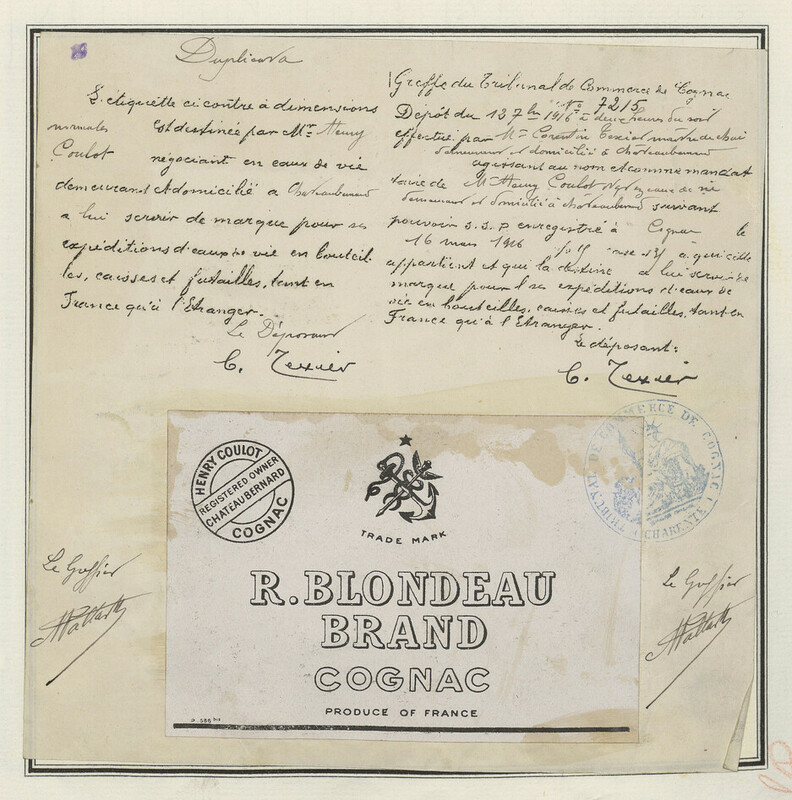 Duplicata
L'étiquette ci contre à dimensions
normales est destinée par Mr Henry
Coulot négociant en eaux de vie
demeurant et domicilié à Chateaubernard
a lui servir de marque pour ses
expéditions d'eaux de vie en bouteil
les, caisses et futailles, tant en
France qu'à l'Etranger.
Le Déposant
C. Texier
Greffe du Tribunal de Commerce de Cognac
No 7215
Dépôt du 13 7bre 1916 à deux heures du soir
effectué par Mr Corentin Texier maître de chai
demeurant et domicilié à Chateaubernard
agissant au nom et comme mandat
taire de Mr Henry Coulot Ngt eaux de vie
demeurant et domicilié à Chateaubernard suivant
pouvoir s.s.p. enregistré à Cognac le
16 mars 1916 à qui elle
appartient et qui la destine a lui servir de
marque pour ses expéditions d'eaux de
vie en bouteilles, caisses et futailles, tant en
France qu'à l'Etranger.
le déposant:
C. Texier
TRIBUNAL DE COMMERCE DE COGNAC
CHARENTE
HENRY COULOT
REGISTERED OWNER
CHATEAUBERNARD
COGNAC
TRADE MARK
R. BLONDEAU
BRAND
COGNAC
PRODUCE OF FRANCE
Le Greffier
Le Greffier